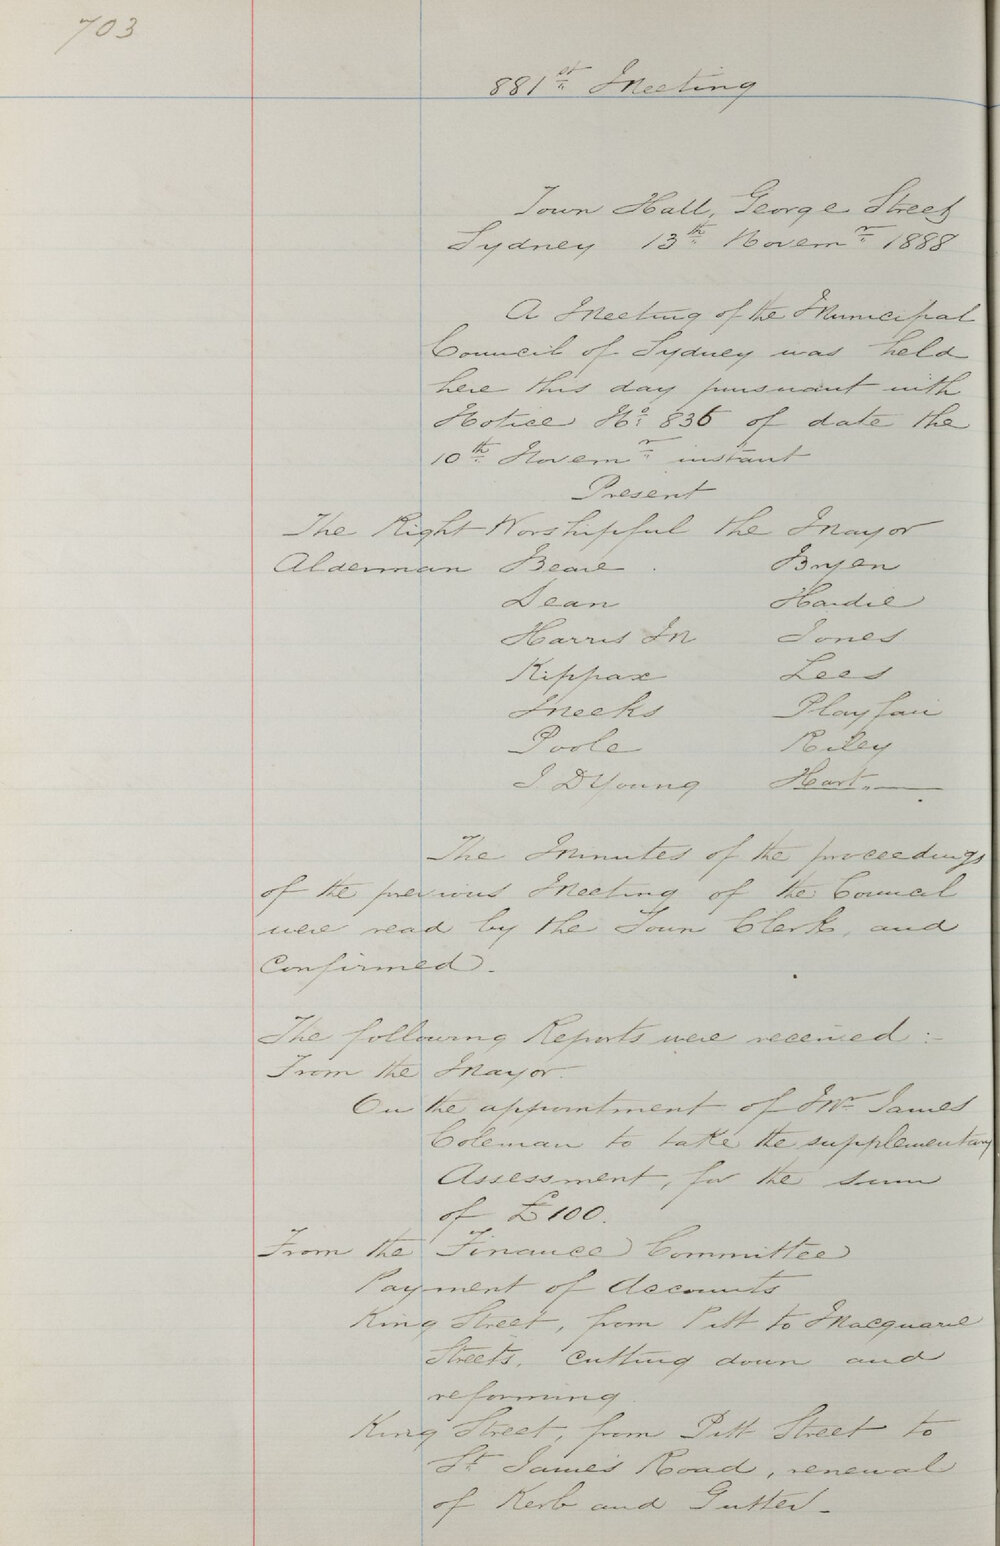 703
881st Meeting
Town Hall, George Street
Sydney 13th Novemr 1888
A Meeting of the Municipal
Council of Sydney was held
here this day pursuant with
Notice No 836 of date the
10th Novemr instant
Present
The Right Worshipful the Mayor
Alderman Beare Bryen
Dean Hardie
Harris M Jones
Kippax Lees
Meeks Playfair
Poole Riley
J D Young Hart
The Minutes of the proceedings
of the previous Meeting of the Council
were read by the Town Clerk, and
Confirmed.
The following Reports were received :-
From the Mayor.
On the appointment of Mr James
Coleman to take the supplementary
Assessment, for the sum
of £100.
From the Finance Committee
Payment of Accounts
King Street, from Pitt to Macquarie
Streets, cutting down and
reforming
King Street, from Pitt Street to
St James's Road, renewal
of Kerb and Gutter -